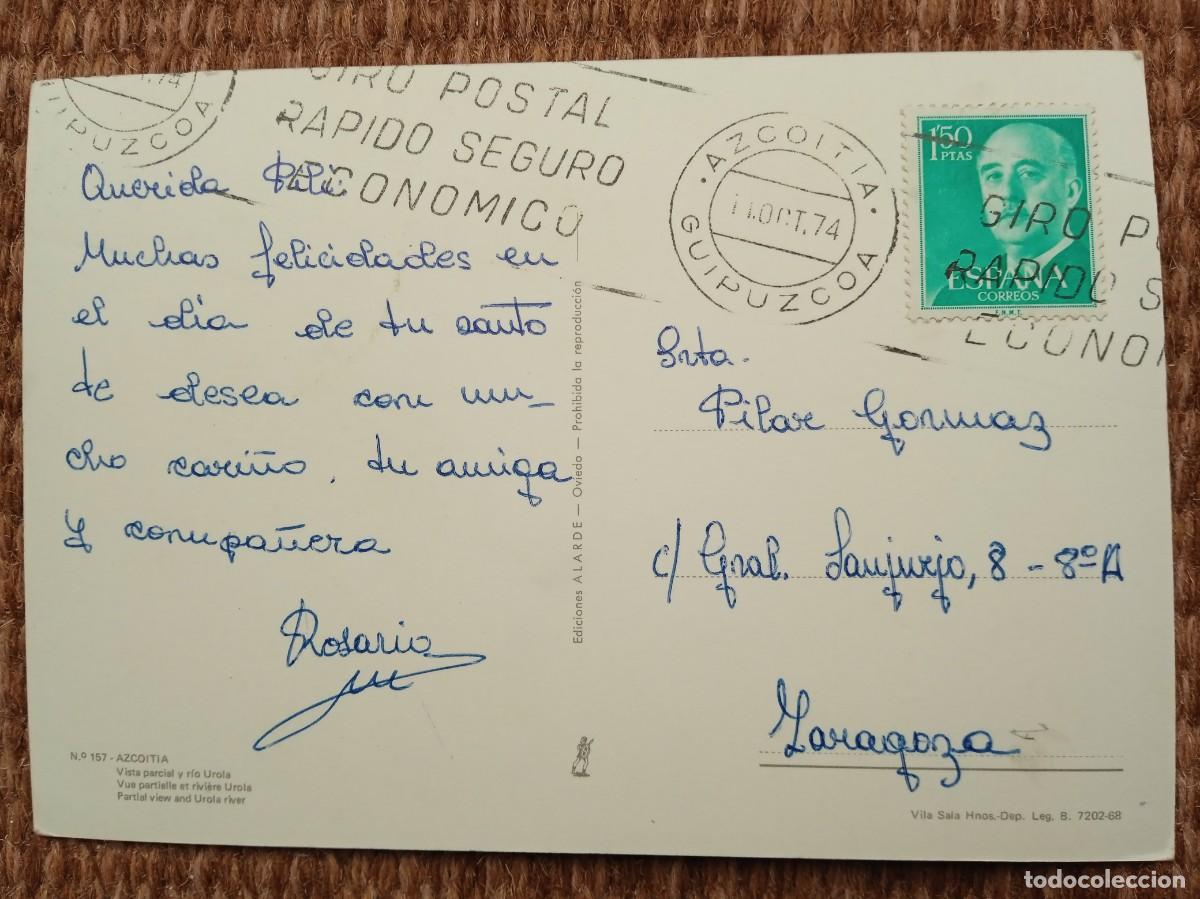 GUIPUZCOA
GIRO POSTAL
RAPIDO SEGURO
ECONOMICO
AZCOITIA
11.OCT.74
GUIPUZCOA
1'50
PTAS
ESPAÑA
CORREOS
F.N.M.T.
GIRO PO
RAPIDO S
ECONO
Querida Pili
Muchas felicidades en
el dia de tu santo
te desea con mu-
cho cariño, tu amiga
y compañera
Rosario
Ediciones ALARDE — Oviedo — Prohibida la reproducción
Srta.
Pilar Gormaz
c/ Gral. Sanjurjo, 8 - 8º A
Zaragoza
N.º 157 - AZCOITIA
Vista parcial y río Urola
Vue partielle et rivière Urola
Partial view and Urola river
Vila Sala Hnos.-Dep. Leg. B. 7202-68
todocoleccion